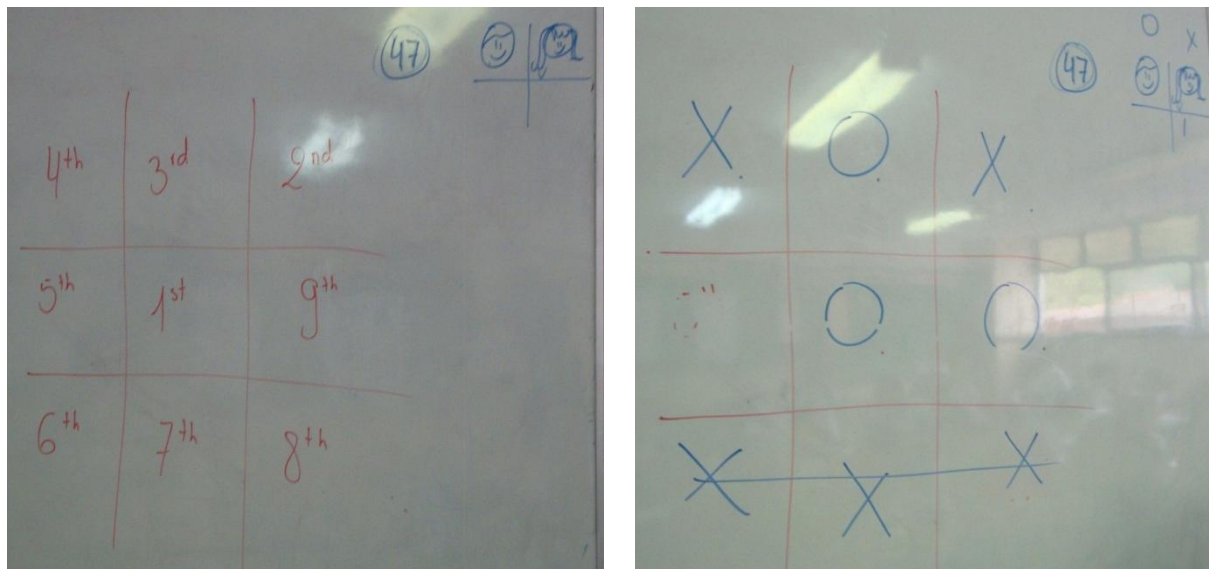 47
4th 3rd 2nd
5th 1st 9th
6th 7th 8th
O X
47
1
X O X
O O
X X X